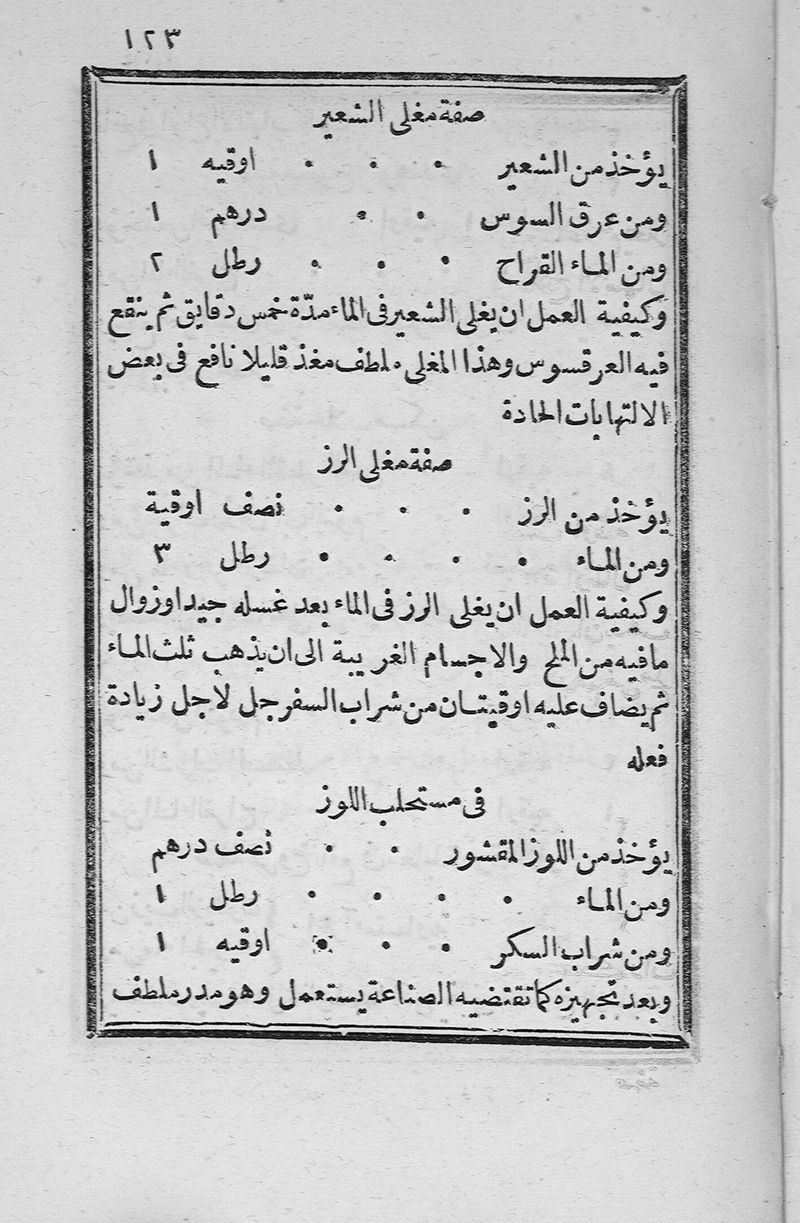 ١٢٣
صفة مغلى الشعير
يؤخذ من الشعير ٠ ٠ ٠ اوقيه ١
ومن عرق السوس ٠ ٠ درهم ١
ومن الماء القراح ٠ ٠ ٠ رطل ٢
وكيفية العمل ان يغلى الشعير فى الماء مدّة خمس دقايق ثم ينقع
فيه العرقسوس وهذا المغلى ملطف مغذ قليلا نافع فى بعض
الالتهابات الحادة
صفة مغلى الرز
يؤخذ من الرز ٠ ٠ ٠ نصف اوقية
ومن الماء ٠ ٠ ٠ ٠ رطل ٣
وكيفية العمل ان يغلى الرز فى الماء بعد غسله جيدا وزوال
مافيه من الملح والاجسام الغريبة الى ان يذهب ثلث الماء
ثم يضاف عليه اوقيتان من شراب السفرجل لاجل زيادة
فعله
فى مستحلب اللوز
يؤخذ من اللوز المقشور ٠ ٠ نصف درهم
ومن الماء ٠ ٠ ٠ ٠ رطل ١
ومن شراب السكر ٠ ٠ ٠ اوقيه ١
وبعد تجهيزه كما تقتضيه الصناعة يستعمل وهو مدر ملطف